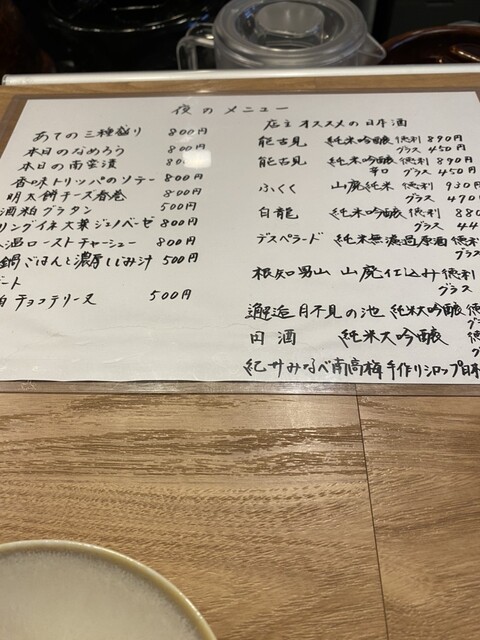 夜のメニュー
あての三種盛り 800円
本日のなめろう 800円
本日の南蛮漬 80
香味トリッパのソテー 800円
明太餅チーズ春巻 800円
酒粕グラタン 500円
リングイネ大葉ジェノベーゼ 800円
温ローストチャーシュー 800円
鍋ごはんと濃厚しじみ汁 500円
ート
チョコテリーヌ 500円
店主オススメの日本酒
能古見 純米吟醸 徳利 890円
グラス 450円
能古見 純米吟醸 徳利 890円
辛口 グラス 450円
ふくく 山廃純米 徳利 930円
グラス 470
白龍 純米吟醸 徳利 880
グラス 44
デスペラード 純米無濾過原酒 徳利
グラス
根知男山 山廃仕込み 徳利
グラス
邂逅 月不見の池 純米大吟醸 徳
グラ
田酒 純米大吟醸 徳
グ
紀州みなべ南高梅手作りシロップ日本